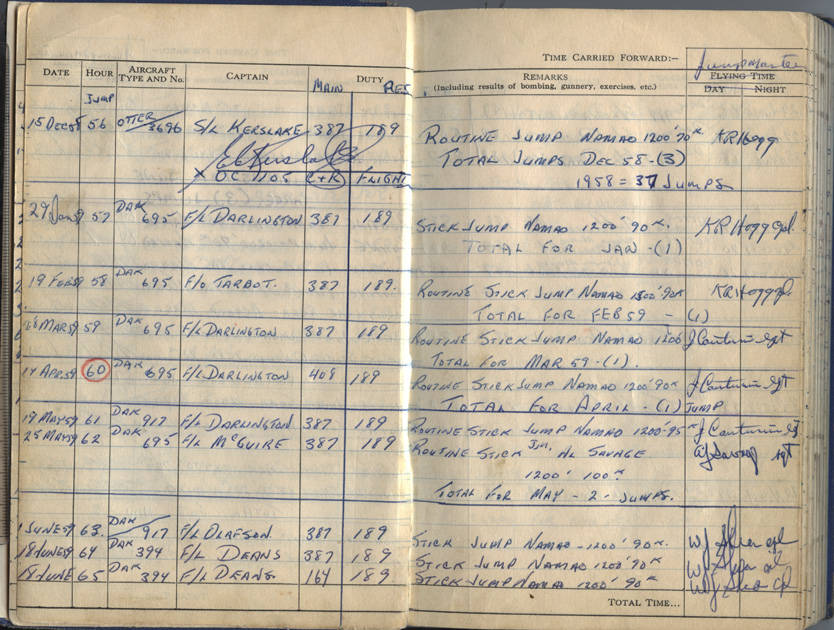 TIME CARRIED FORWARD:-
Jumpmaster
DATE HOUR AIRCRAFT TYPE AND NO. CAPTAIN MAIN DUTY RES REMARKS FLYING TIME
(Including results of bombing, gunnery, exercises, etc.) DAY NIGHT
JUMP
15 DEC 58 56 OTTER 3696 S/L KERSLAKE 387 189 ROUTINE JUMP NAMAO 1200' 90K KR Hogg
TOTAL JUMPS DEC 58-(3)
X OC 1105 C+R FLIGHT 1958 = 37 JUMPS
29 Jan 59 57 DAK 695 F/L DARLINGTON 387 189 STICK JUMP NAMAO 1200' 90K. KR Hogg Cpl.
TOTAL FOR JAN -(1)
19 FEB 59 58 DAK 695 F/O TARBOT. 387 189. ROUTINE STICK JUMP NAMAO 1200' 90K KR Hogg
TOTAL FOR FEB 59 - (1)
MAR 59 59 DAK 695 F/L DARLINGTON 387 189 ROUTINE STICK JUMP NAMAO 1200 Sgt
TOTAL FOR MAR 59 -(1).
14 APR 59 60 DAK 695 F/L DARLINGTON 408 189 ROUTINE STICK JUMP NAMAO 1200' 90K Sgt
TOTAL FOR APRIL - (1) JUMP
19 MAY 59 61 DAK 917 F/L DARLINGTON 387 189 ROUTINE STICK JUMP NAMAO 1200'-95K
25 MAY 59 62 DAK 695 F/L McGUIRE 387 189 ROUTINE STICK Jm. AL SAVAGE Sgt
1200' 100K
TOTAL FOR MAY - 2 - JUMPS.
1 JUNE 59 63. DAK 917 F/L OLAFSON 387 189 STICK JUMP NAMAO - 1200' 90K. WJ Cpl
18 JUNE 59 64 DAK 394 F/L DEANS 387 189 STICK JUMP NAMAO 1200' 90K WJ
18 JUNE 65 DAK 394 F/L DEANS. 164 189 STICK JUMP NAMAO 1200' 90K WJ Cpl
TOTAL TIME...